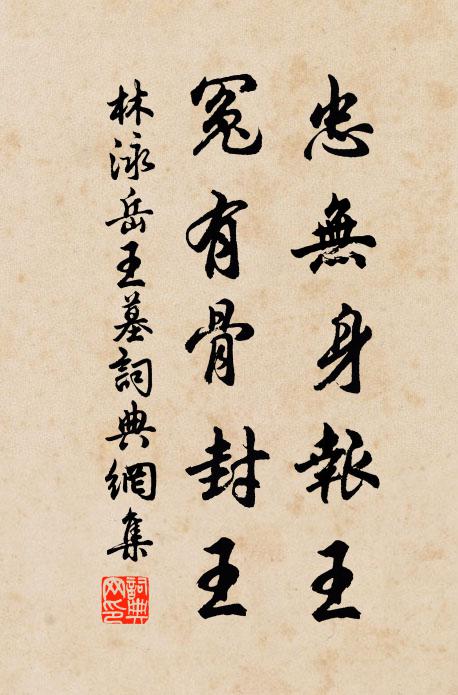 忠無身報王
冤有骨封王
林泳岳王墓詞典網集
詞典
网印